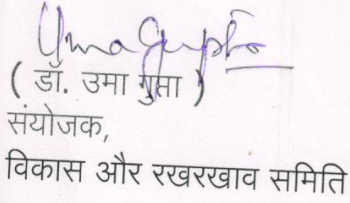 Uma Gupta
( डॉ. उमा गुप्ता )
संयोजक,
विकास और रखरखाव समिति